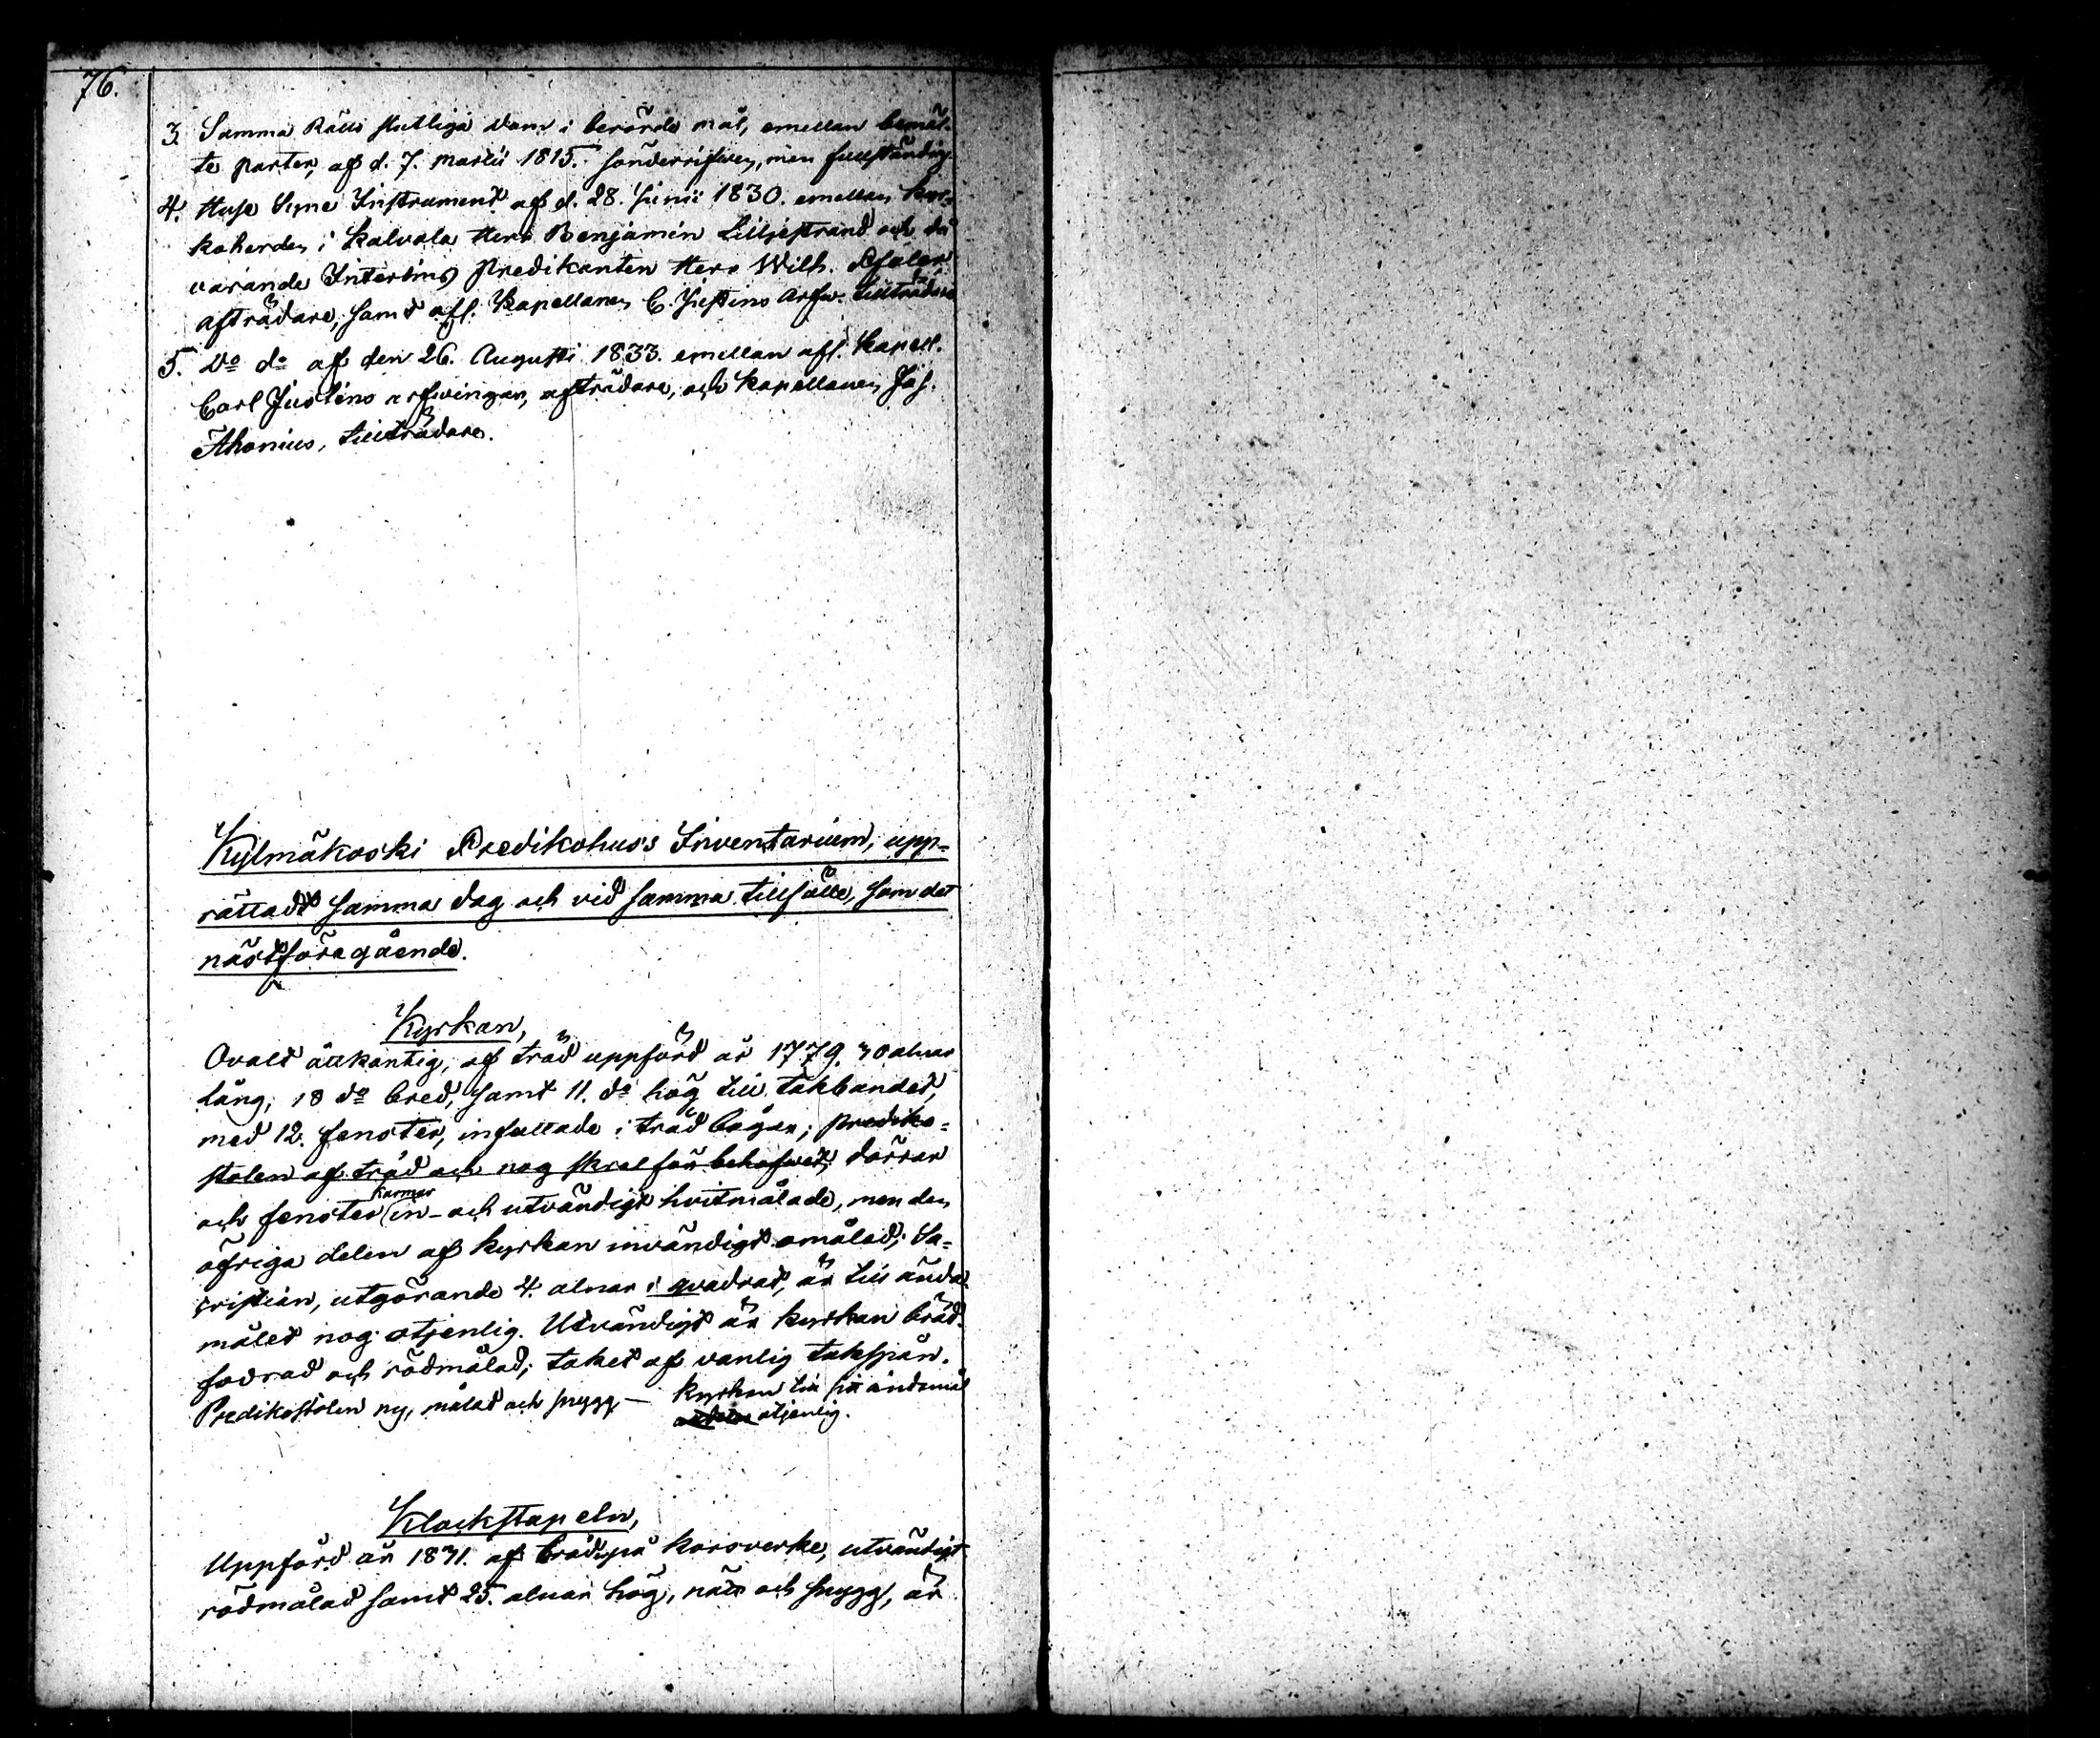 76.
3. Samma Rätts slutliga dom i berörde mål, emellan bemäl-
te parter, af d. 7. Martii 1815. sönderrifven, men fullständig.
4. Huse Syne Instrument af d. 28. Junii 1830. emellan kyr-
koherden i Kalvola Herr Benjamin Lilljestrand och då
varande Interims Predikanten Herr Wilh. Pfaler
afträdare, samt afl. Kapellanen C. Justins Arfw. tillträdare
5. Do do af den 26. Augusti 1833. emellan afl. Kapell.
Carl Justins arfvingar, afträdare, och Kapellanen Joh.
Ahonius, tillträdare.
Kylmäkoski Predikohus's Inventarium, upp-
rättadt samma dag och vid samma tillfälle, som det
nästföregående.
Kyrkan,
Ovalt åttkantig, af träd uppförd år 1779. 30 alnar
lång, 18 do bred, samt 11. do hög till takbandet,
med 12. fenster, infattade i träd bågar; prediko-
stolen af träd och nog skral för behofvet; dörrar
och fenster karmar in- och utvändigt hvitmålade, men den
öfriga delen af kyrkan invändigt omålad; Sa-
cristian, utgörande 4. alnar i qvadrat, är till ända-
målet nog otjenlig. Utvändigt är kyrkan bräd-
fodrad och rödmålad; taket af vanlig takspån.
Predikostolen ny, målad och snygg — Kyrkan till sitt ändamål
otjenlig.
Klockstapeln,
Uppförd år 1831. af bräder på korsverke, utvändigt
rödmålad samt 25. alnar hög, nätt och snygg, är